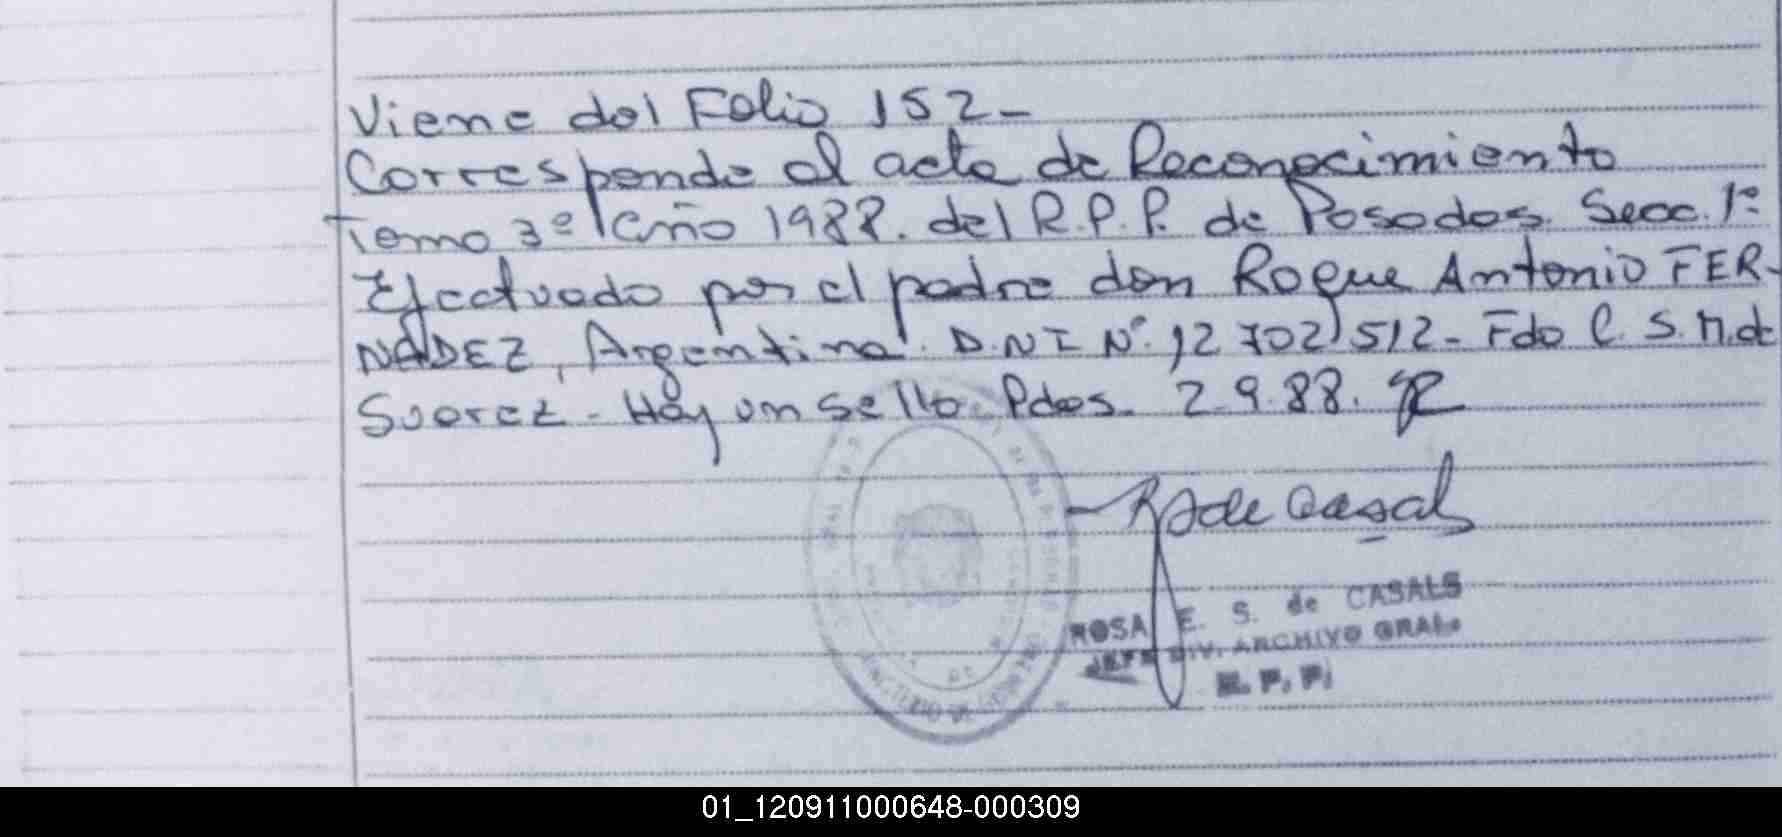 Viene del Folio 152-
Corresponde al acta de Reconocimiento
Tomo 3º Año 1988. del R.P.P. de Posadas. Secc. 1º
Efectuado por el padre don Roque Antonio FER-
NADEZ, Argentino. D.N.I Nº. 12702512- Fdo C. S. M. de
Suarez - Hay un sello. Pdas. 2.9.88.
R S de Casals
ROSA E. S. de CASALS
JEFE DIV. ARCHIVO GRAL.
R. P. P.
01_120911000648-000309